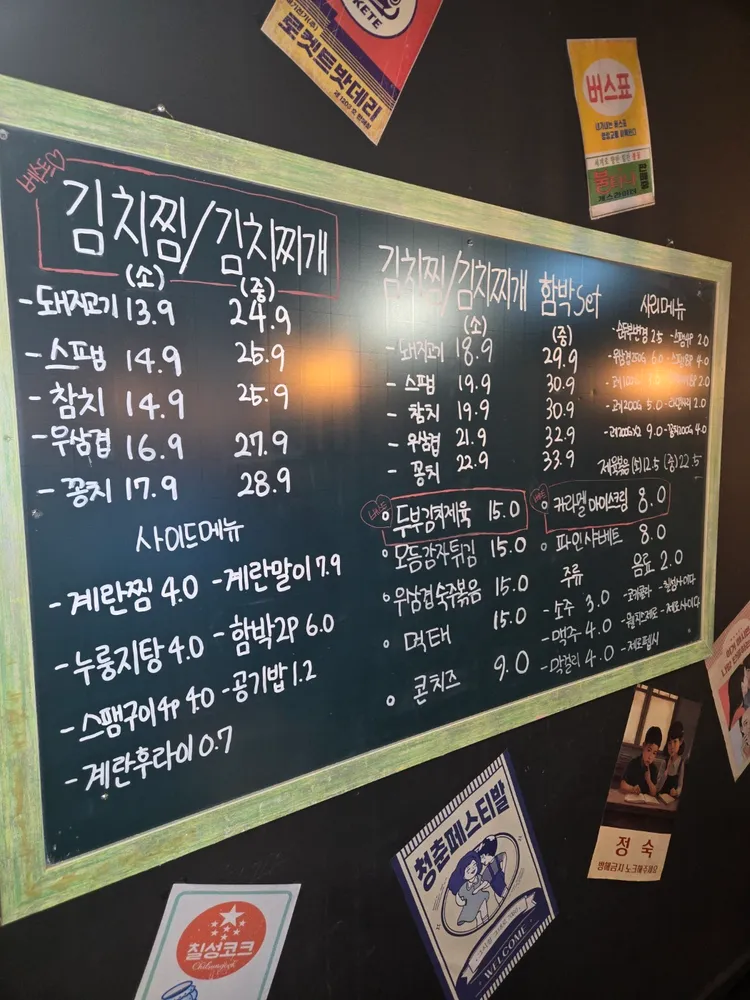 KETE
로켓트밧데리
버스표
김치찜/김치찌개
(소) (중)
-돼지고기 13.9 24.9
-스팸 14.9 25.9
-참치 14.9 25.9
-우삼겹 16.9 27.9
-꽁치 17.9 28.9
사이드메뉴
-계란찜 4.0 -계란말이 7.9
-누룽지탕 4.0 -함박2P 6.0
-스팸구이4P 4.0 -공기밥 1.2
-계란후라이 0.7
김치찜/김치찌개 함박Set
(소) (중)
-돼지고기 18.9 29.9
-스팸 19.9 30.9
-참치 19.9 30.9
-우삼겹 21.9 32.9
-꽁치 22.9 33.9
두부김치제육 15.0
모듬감자튀김 15.0
우삼겹숙주볶음 15.0
먹태 15.0
콘치즈 9.0
사리메뉴
2.5 2.0
6.0 4.0
2.0
5.0 2.0
9.0 4.0
제육볶음 (소)12.5 (중)22.5
카라멜 아이스크림 8.0
파인샤베트 8.0
주류
-소주 3.0
-맥주 4.0
-막걸리 4.0
음료 2.0
-코카콜라 -칠성사이다
-제로사이다
-제로펩시
정숙
방해금지 노크해주세요
청춘페스티발
WELCOME
칠성코크